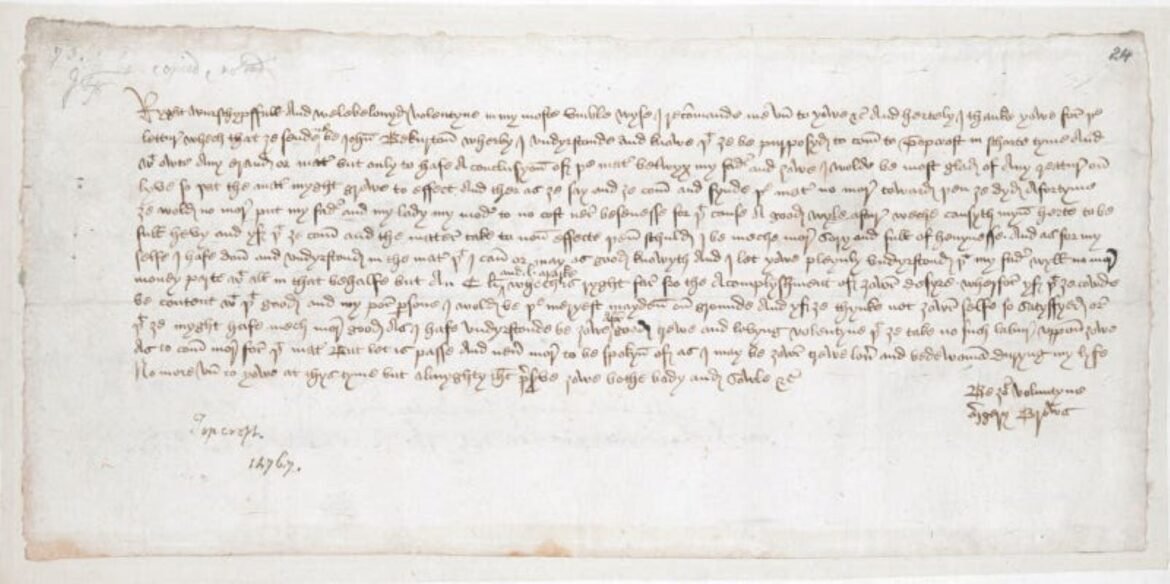 Ryght wurschypffull And welebelouyd Volentyne in my moste vmble wyse I recomande me vn to yowe &c And hertely I thanke yowe for þe
lettyr whech that ye sende me be John Bekurton wherby I vndyrstonde and knowe þt ye be purposyd to com to Topcroft in schorte tyme And
wt owte Any erand or mater but only to hafe A conclusyon of þe mater betwyx my fadyr and yowe I wolde be most glad of Any creatur on
lyve so þat the mater myght growe to effect And ther as ye say and ye com and fynde þe mater no mor toward þen ye dyd Afortyme
ye wold no mor put my fadyr and my lady my moder to no cost ner besenesse for þt cause A good wyle aftyr weche causyth myn herte to be
full hevy and yf þt ye com and the mater take to non effecte þen schuld I be meche mor sory and full of heuynesse And as for my
selfe I hafe don and vndyrstond in the mater þt I can or may as good knowyth And I let yowe pleynly vndyrstond þt my fader wyll no mor
money parte wt all in that behalfe but An C li and l marke whech is ryght far fro the Acomplyshment of yowr desyre wherfor yf þt ye cowde
be content wt þt good and my por persone I wold be þe meryest mayden on grounde And yf ye thynke not yowr selfe so satysfyed or
þt ye myght hafe mech mor good As I hafe vndyrstonde be yowe afor good trewe and lovyng volentyne þt ye take no such labur vppon yowe
As to com mor for þt mater But let is passe And never mor to be spokyn of as I may be yowr trewe lover and bedewoman duryng my lyfe
No more vn to yowe at thys tyme but almyghty Jhs preserve yowe bothe body and sowle &c
Be yor voluntyne
Mergery Brews
Topcroft.
1476/7.
24